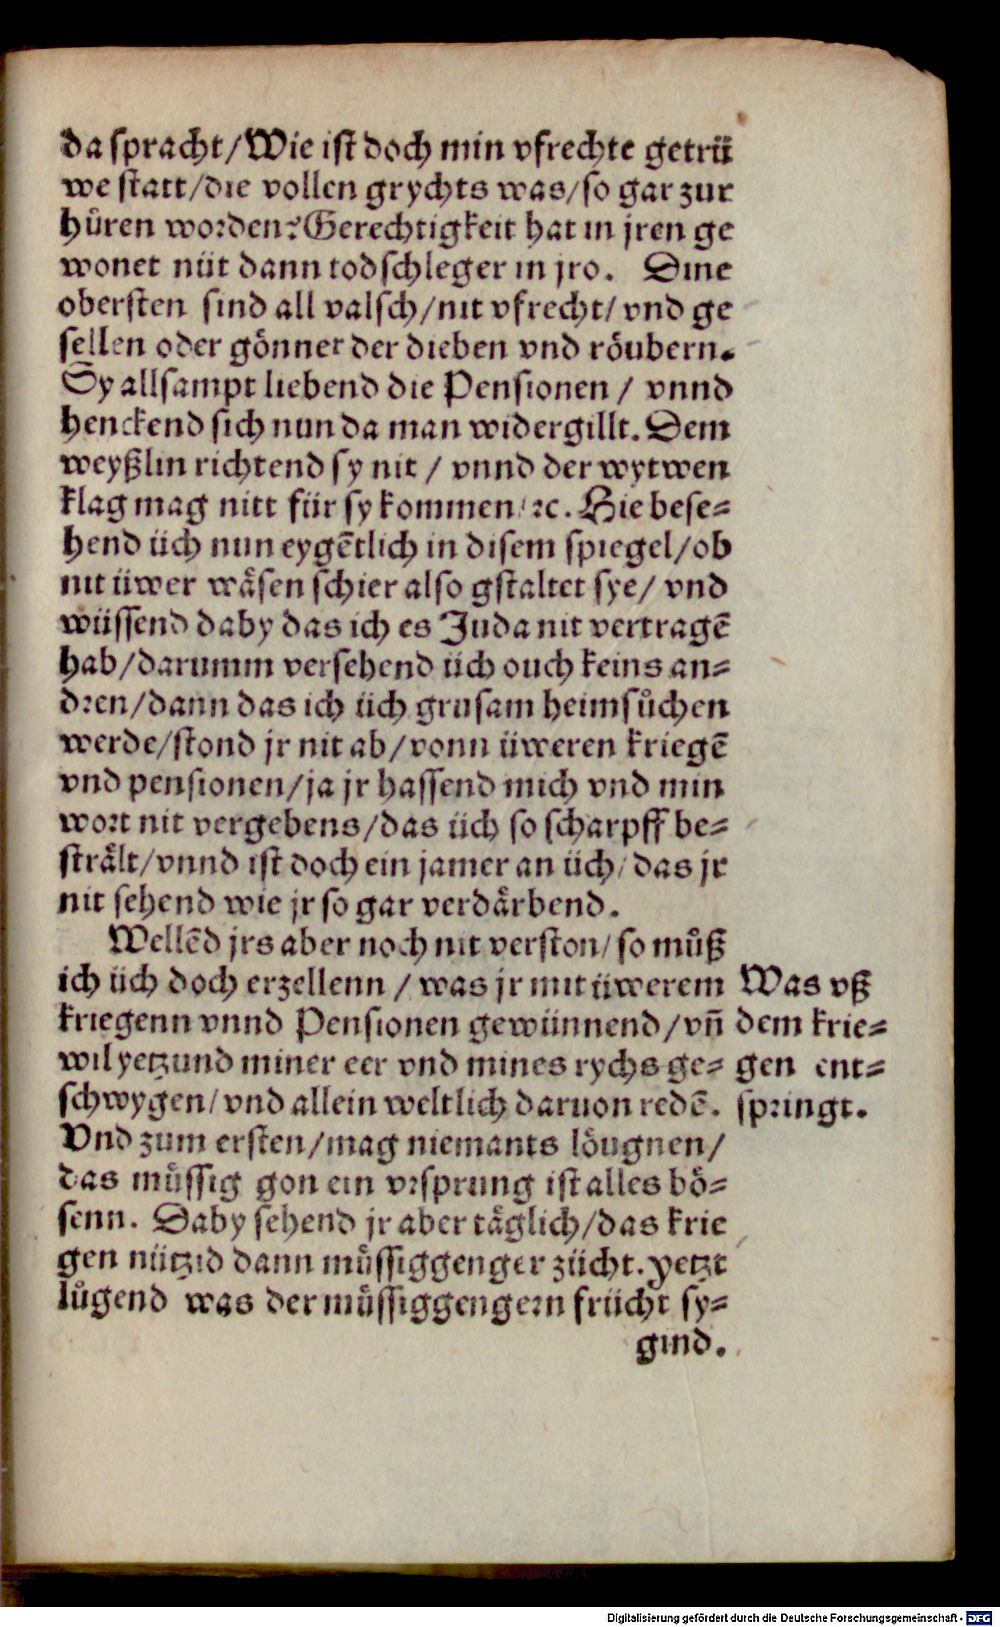 da spracht/Wie ist doch min vfrechte getrü
we statt/die vollen grychts was/so gar zur
hůren worden? Gerechtigkeit hat in jren ge
wonet nüt dann todschleger in jro. Dine
obersten sind all valsch/nit vfrecht/ vnd ge
sellen oder gönner der dieben vnd röubern.
Sy allsampt liebend die Pensionen / vnnd
henckend sich nun da man widergillt. Dem
weyßlin richtend sy nit / vnnd der wytwen
klag mag nitt für sy kommen/ ꝛc. Hie bese⸗
hend üch nun eygẽtlich in disem spiegel/ob
nit üwer wåsen schier also gstaltet sye/ vnd
wüssend daby das ich es Juda nit vertragẽ
hab/darumm versehend üch ouch keins an⸗
dren/dann das ich üch grusam heimsůchen
werde/stond jr nit ab/vonn üweren kriegẽ
vnd pensionen/ja jr hassend mich vnd min
wort nit vergebens/das üch so scharpff be⸗
strålt/vnnd ist doch ein jamer an üch/das jr
nit sehend wie jr so gar verdårbend.
Wellẽd jrs aber noch nit verston/ so můß
ich üch doch erzellenn / was jr mit üwerem
kriegenn vnnd Pensionen gewünnend/vñ
wil yetzund miner eer vnd mines rychs ge⸗
schwygen/vnd allein weltlich daruon redẽ.
Vnd zum ersten/mag niemants löugnen/
das müssig gon ein vrsprung ist alles bö⸗
senn. Daby sehend jr aber täglich/das krie
gen nützid dann müssiggenger zücht. yetzt
lůgend was der müssiggengern frücht sy⸗
gind.
Was vß
dem krie⸗
gen ent⸗
springt.
Digitalisierung gefördert durch die Deutsche Forschungsgemeinschaft - DFG